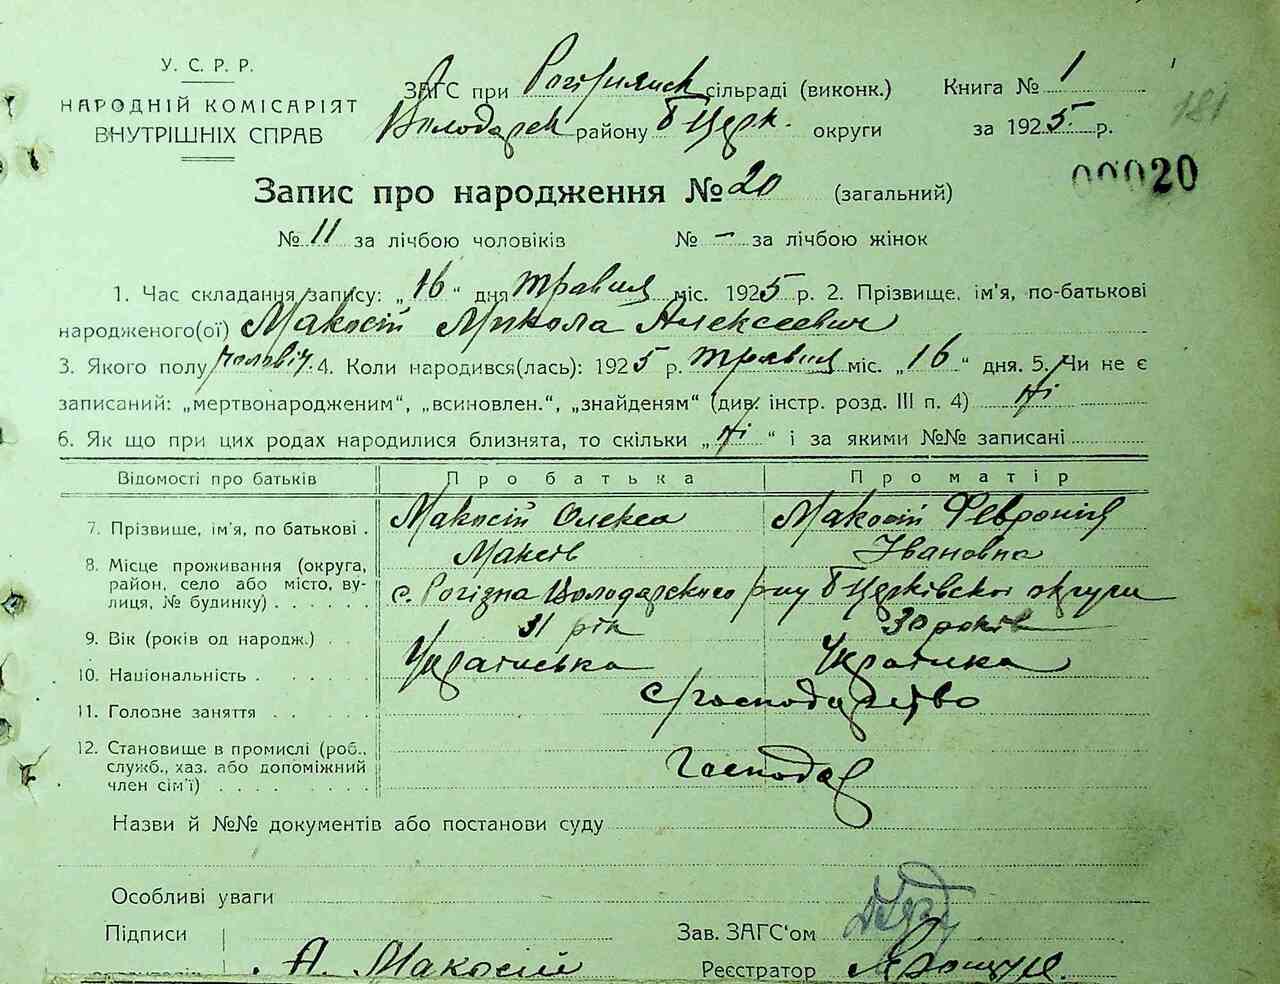 У. С. Р. Р.
НАРОДНІЙ КОМІСАРІЯТ
ВНУТРІШНІХ СПРАВ
ЗАГС при сільраді (виконк.) Книга № 1
Володарск району Б Церк. округи за 1925 р.
181
00020
Запис про народження № 20 (загальний)
№ 11 за лічбою чоловіків № – за лічбою жінок
1. Час складання запису: „16“ дня травня міс. 1925 р. 2. Прізвище, ім'я, по-батькові
народженого(ої) Макосій Микола Алексеевич
3. Якого полу чоловіч. 4. Коли народився(лась): 1925 р. травня міс. „16“ дня. 5. Чи не є
записаний: „мертвонародженим“, „всиновлен.“, „знайденям“ (див. інстр. розд. III п. 4) Ні
6. Як що при цих родах народилися близнята, то скільки „Ні“ і за якими №№ записані
Відомості про батьків Про батька Про матір
7. Прізвище, ім'я, по батькові . Макосій Олекса Макосій Февронія
Максів Івановна
8. Місце проживання (округа,
район, село або місто, ву-
лиця, № будинку) . . . . . с. Рогізна Володарського р-ну Б Церківської округи
9. Вік (років од народж.) . 31 рік 30 років
10. Національність . . . . . Українська Українка
11. Головне заняття . . . . . с/господарство
12. Становище в промислі (роб.,
служб., хаз. або допоміжний
член сім'ї) . . . . . . . Господар
Назви й №№ документів або постанови суду
Особливі уваги
Підписи Зав. ЗАГС'ом
А. Макосій Реєстратор